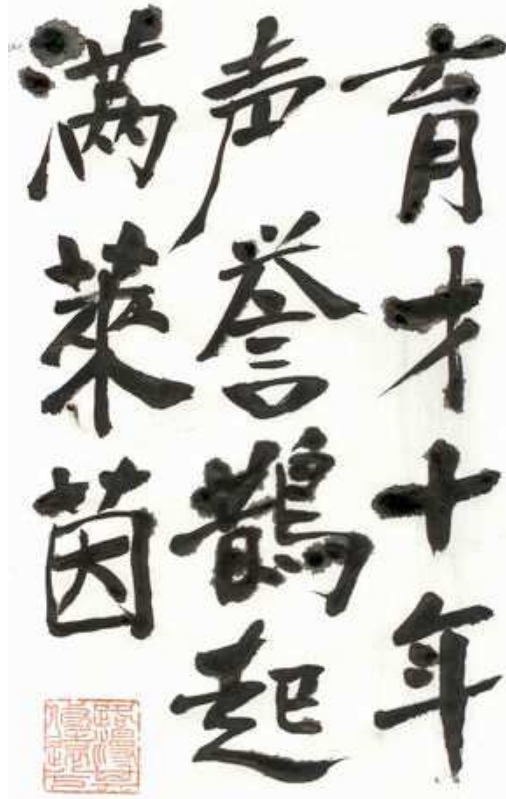 育才十年
声誉鹊起
满萊茵